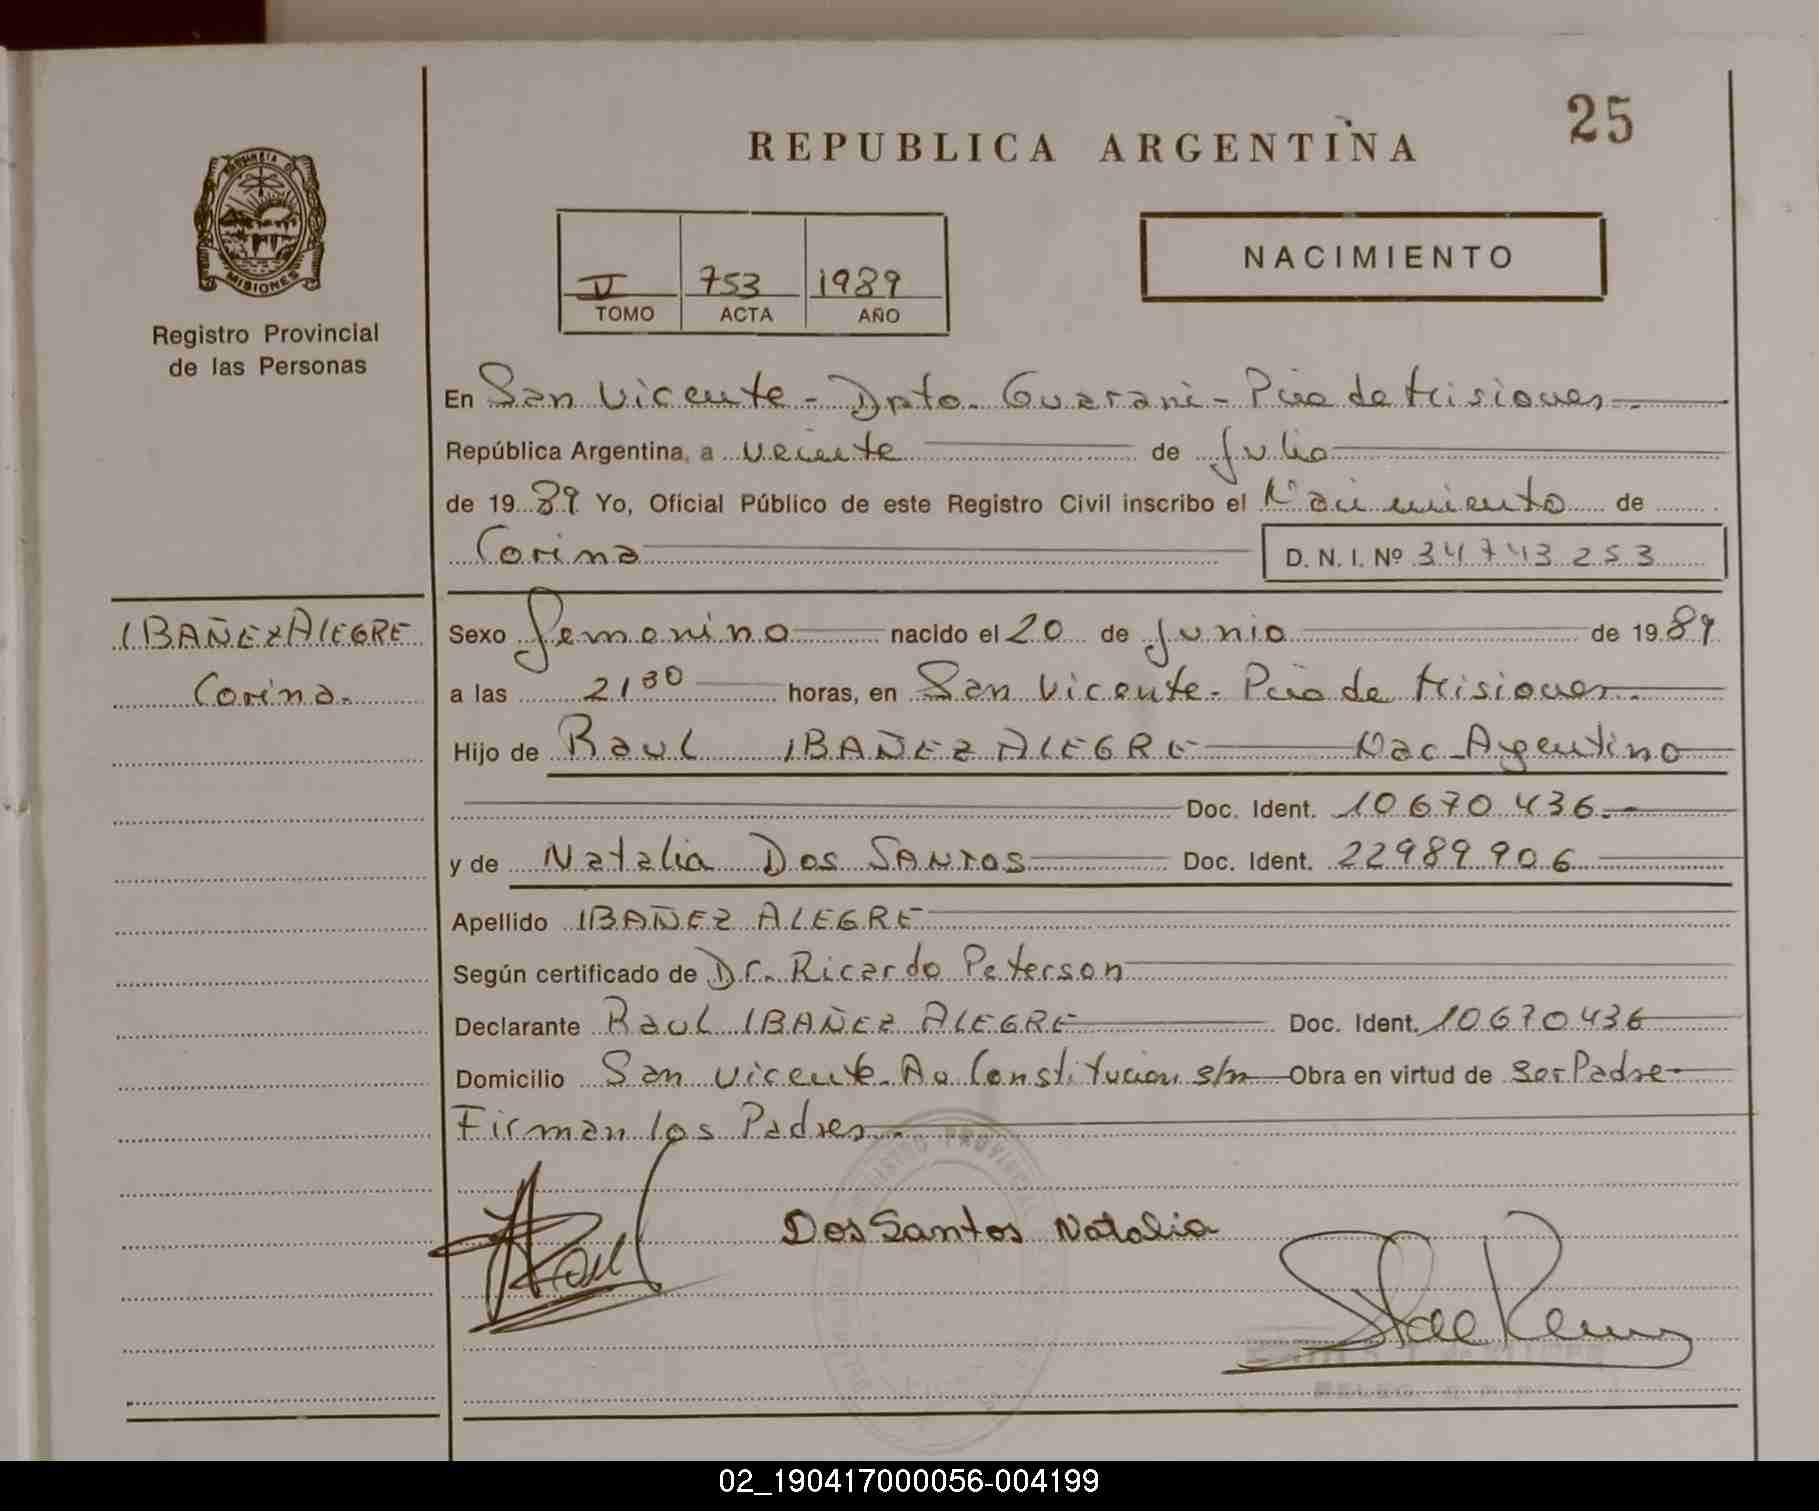 25
REPUBLICA ARGENTINA
PROVINCIA D
MISIONES
Registro Provincial
de las Personas
V 753 1989
TOMO ACTA AÑO
NACIMIENTO
En San Vicente - Dpto. Guarani - Pcia de Misiones
República Argentina, a veinte de Julio
de 1989 Yo, Oficial Público de este Registro Civil inscribo el Nacimiento de
Corina D. N. I. Nº 34743253
IBAÑEZ ALEGRE
Corina.
Sexo Femenino nacido el 20 de Junio de 1989
a las 21 30 horas, en San Vicente - Pcia de Misiones.
Hijo de Raul IBAÑEZ ALEGRE Nac. Argentino
Doc. Ident. 10670436.-
y de Natalia Dos SANTOS Doc. Ident. 22989906
Apellido IBAÑEZ ALEGRE
Según certificado de Dr. Ricardo Peterson
Declarante Raul IBAÑEZ ALEGRE Doc. Ident. 10670436
Domicilio San Vicente. Av Constitucion s/n Obra en virtud de ser Padre
Firman los Padres..
Raul
Dos Santos Natalia
02_190417000056-004199